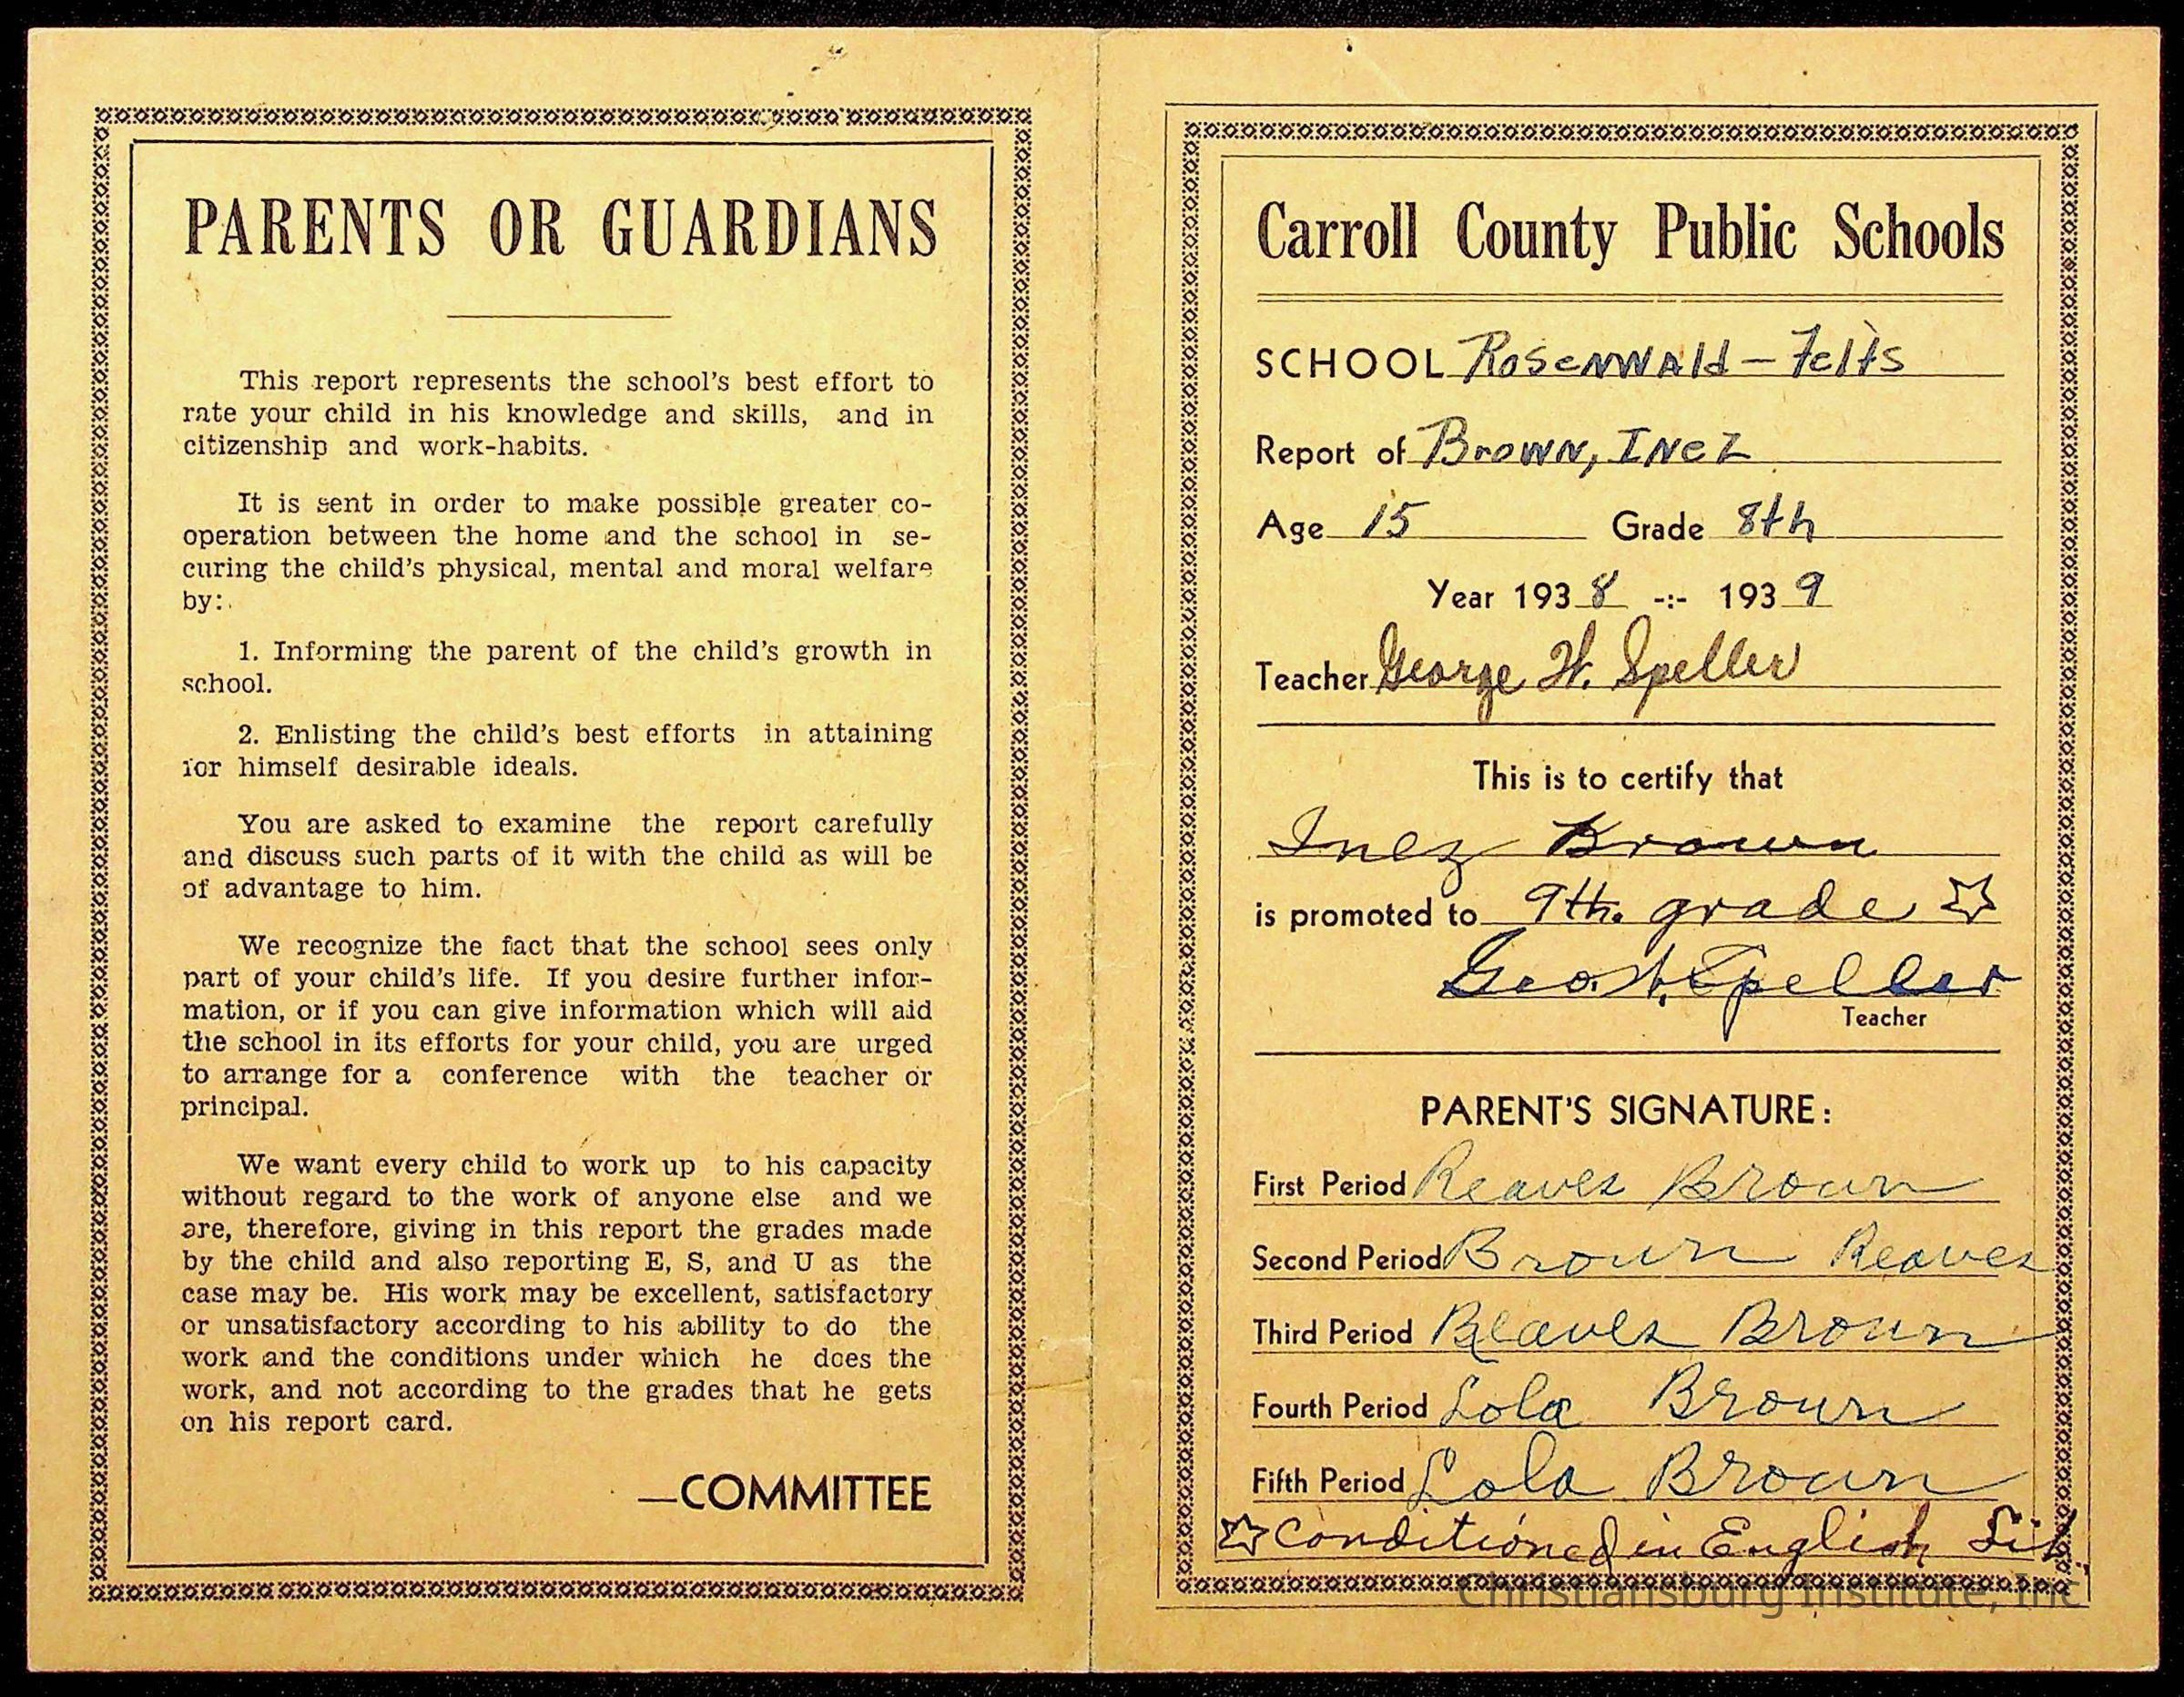 PARENTS OR GUARDIANS
This report represents the school's best effort to
rate your child in his knowledge and skills, and in
citizenship and work-habits.
It is sent in order to make possible greater co-
operation between the home and the school in se-
curing the child's physical, mental and moral welfare
by:
1. Informing the parent of the child's growth in
school.
2. Enlisting the child's best efforts in attaining
for himself desirable ideals.
You are asked to examine the report carefully
and discuss such parts of it with the child as will be
of advantage to him.
We recognize the fact that the school sees only
part of your child's life. If you desire further infor-
mation, or if you can give information which will aid
the school in its efforts for your child, you are urged
to arrange for a conference with the teacher or
principal.
We want every child to work up to his capacity
without regard to the work of anyone else and we
are, therefore, giving in this report the grades made
by the child and also reporting E, S, and U as the
case may be. His work may be excellent, satisfactory
or unsatisfactory according to his ability to do the
work and the conditions under which he does the
work, and not according to the grades that he gets
on his report card.
—COMMITTEE
Carroll County Public Schools
SCHOOL Rosenwald - Felts
Report of Brown, Inez
Age 15 Grade 8th
Year 1938 -:- 1939
Teacher George H. Speller
This is to certify that
Inez Brown
is promoted to 9th. grade ☆
Geo. H. Speller
Teacher
PARENT'S SIGNATURE:
First Period Reaves Brown
Second Period Brown Reaves
Third Period Reaves Brown
Fourth Period Lola Brown
Fifth Period Lola Brown
☆ Conditioned in English Lit.
Christiansburg Institute, Inc